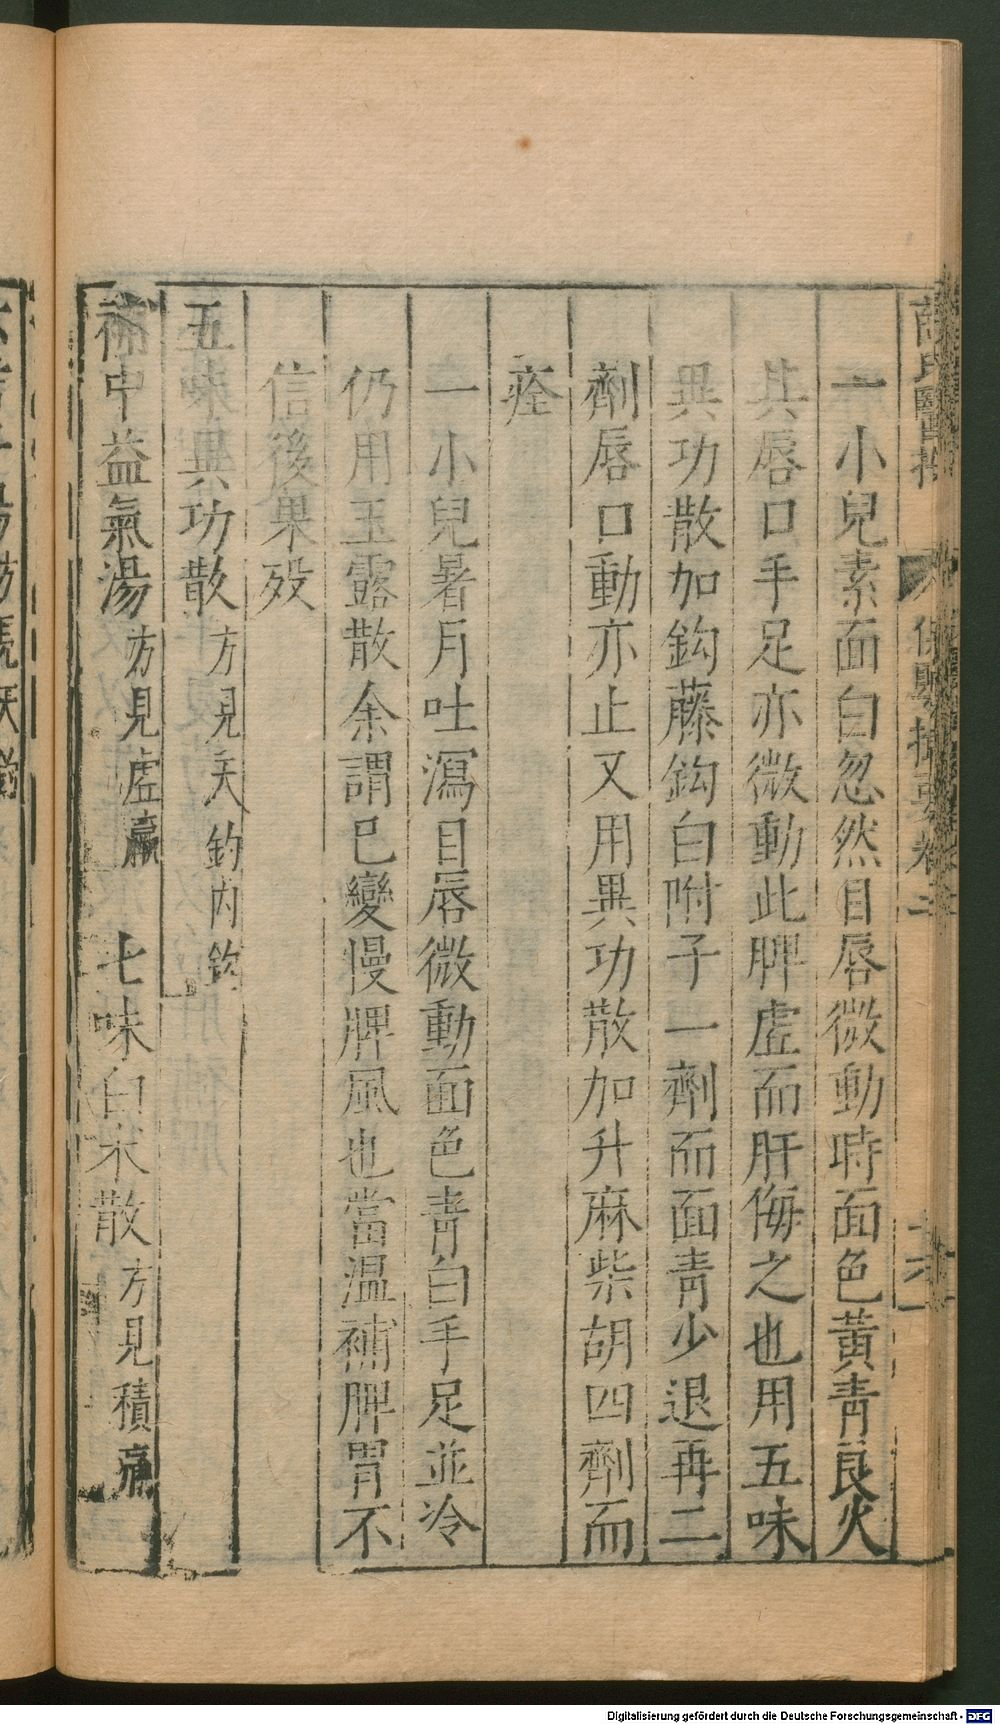 薛氏醫按 保嬰撮要卷二
一小兒素面白忽然目唇微動時面色黃青良久
其唇口手足亦微動此脾虛而肝侮之也用五味
異功散加鈎藤鈎白附子一劑而面青少退再二
劑唇口動亦止又用異功散加升麻柴胡四劑而
痊
一小兒暑月吐瀉目唇微動面色青白手足並冷
仍用玉露散余謂已變慢脾風也當溫補脾胃不
信後果歿
五味異功散方見天釣內釣
補中益氣湯方見虛羸 七味白朮散方見積痛
Digitalisierung gefördert durch die Deutsche Forschungsgemeinschaft - DFG